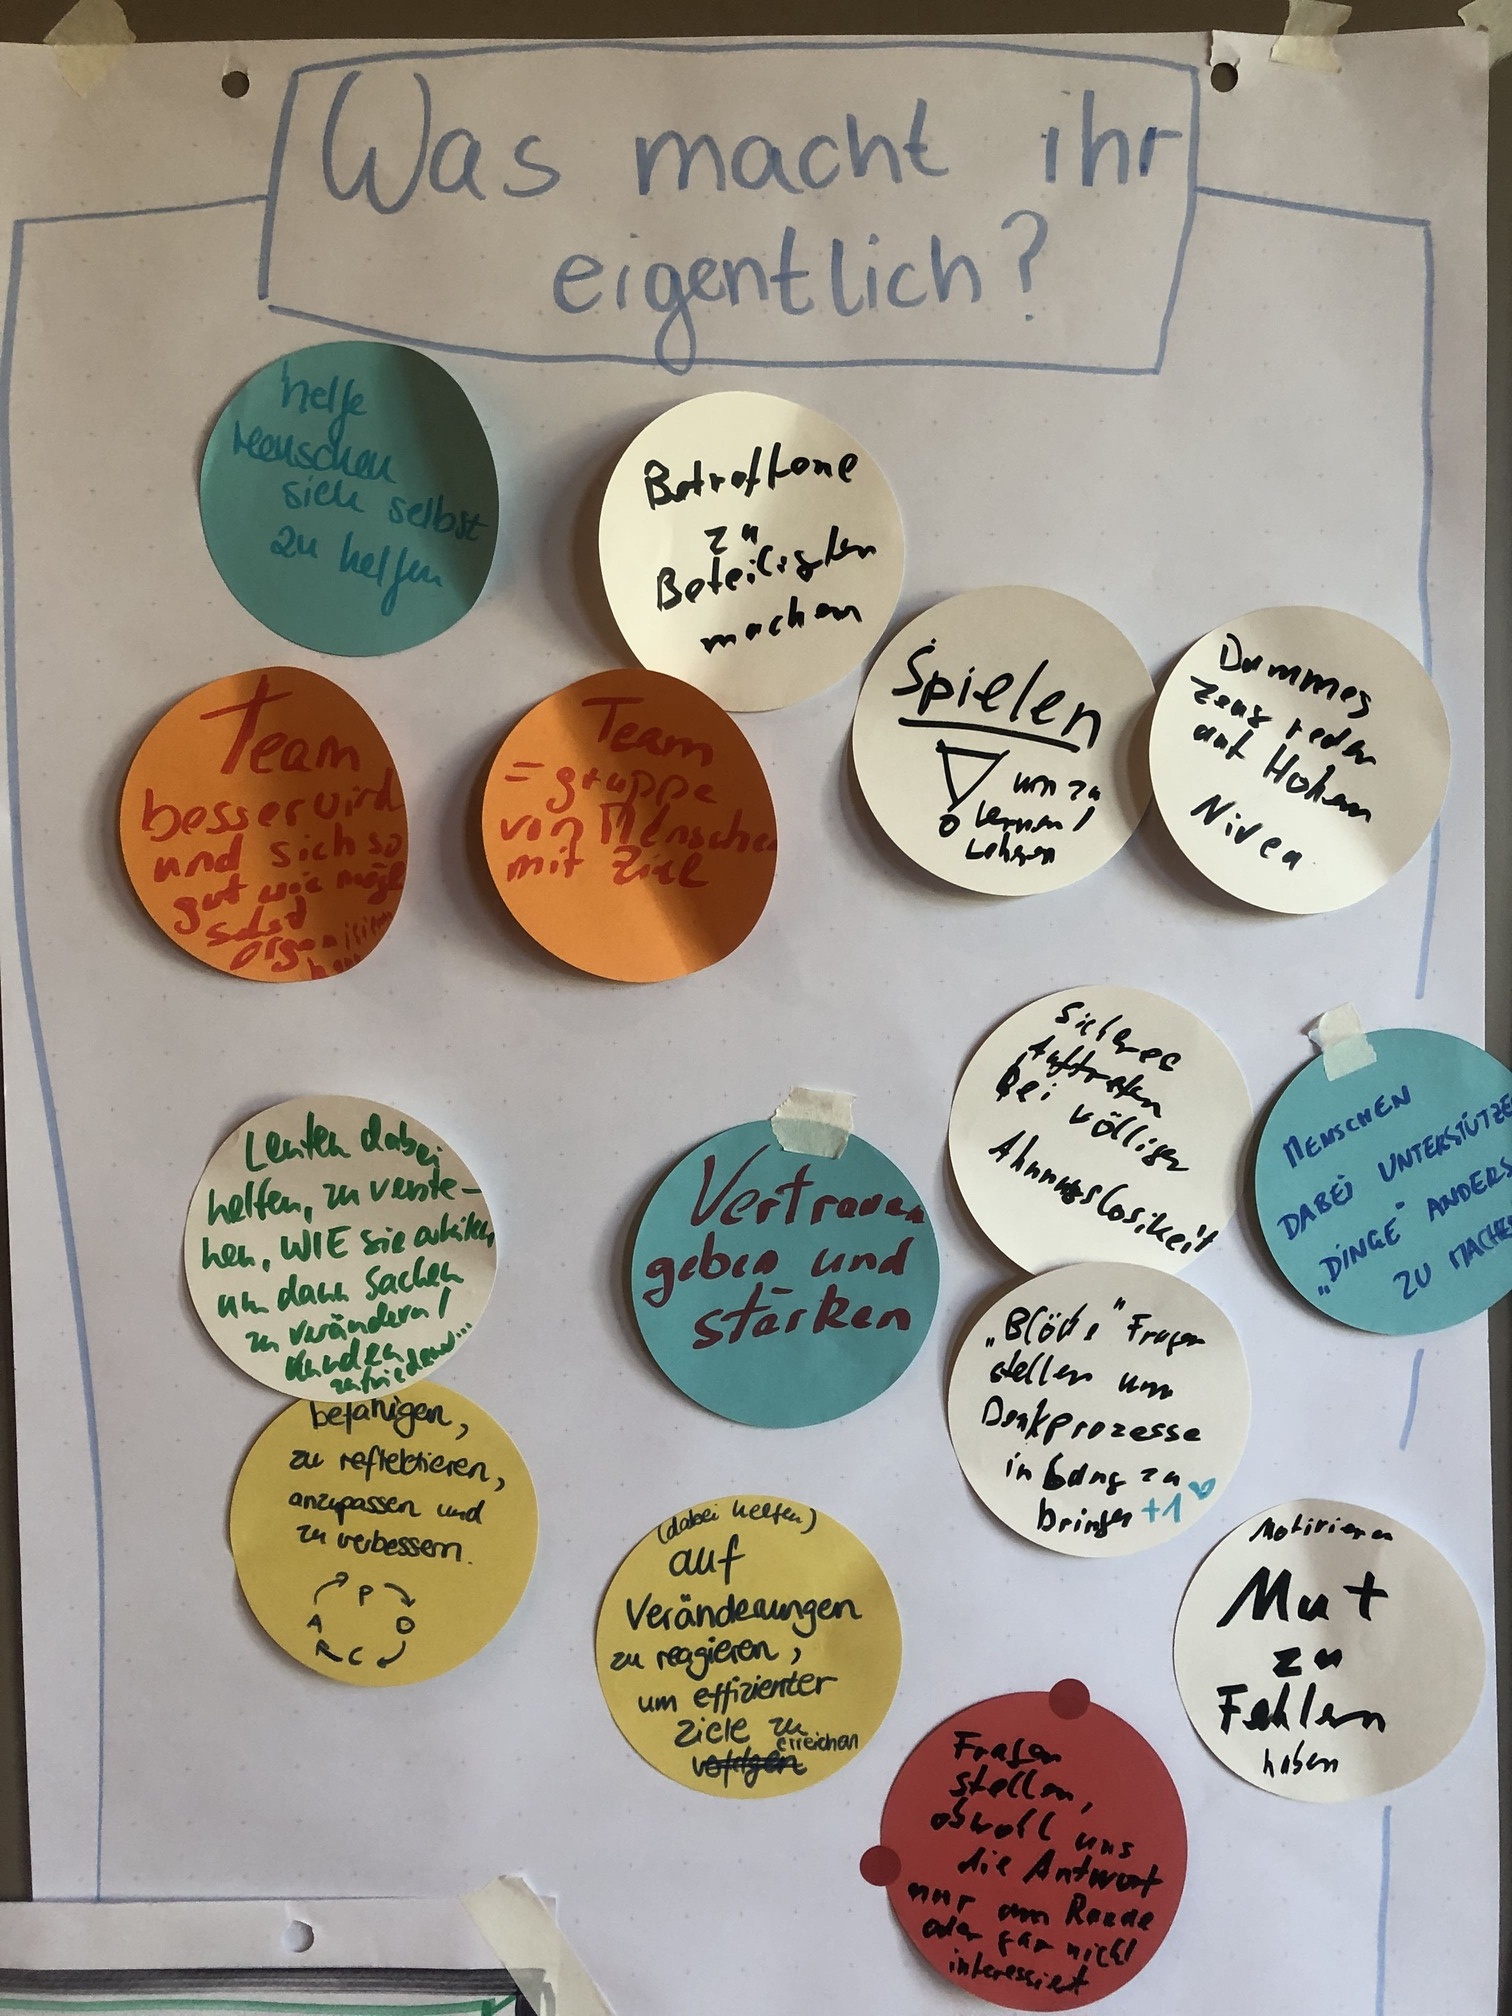 Was macht ihr
eigentlich?
helfe
Menschen
sich selbst
zu helfen
Betroffene
zu
Beteiligten
machen
Spielen
um zu
lernen/
lehren
Dummes
Zeug reden
auf Hohem
Nivea
Team
besser wird
und sich so
gut wie mögl
selbst
organisieren
Team
= gruppe
von Menschen
mit Ziel
Sicheres
Auftreten
Bei völliger
Ahnungslosikeit
MENSCHEN
DABEI UNTERSTÜTZE
„DINGE" ANDERS
ZU MACHE
Leuten dabei
helfen, zu verste-
hen, WIE sie arbeiten,
um dann Sachen
zu verändern/
Kunden
zufriedene...
Vertrauen
geben und
stärken
„Blöde" Fragen
stellen um
Denkprozesse
in Gang zu
bringen +1
befähigen,
zu reflektieren,
anzupassen und
zu verbessern.
P
A D
C
(dabei helfen)
auf
Veränderungen
zu reagieren,
um effizienter
Ziele zu
erreichen
Motivieren
Mut
zu
Fehlern
haben
Fragen
stellen,
obwohl uns
die Antwort
nur am Rande
oder gar nicht
interessiert